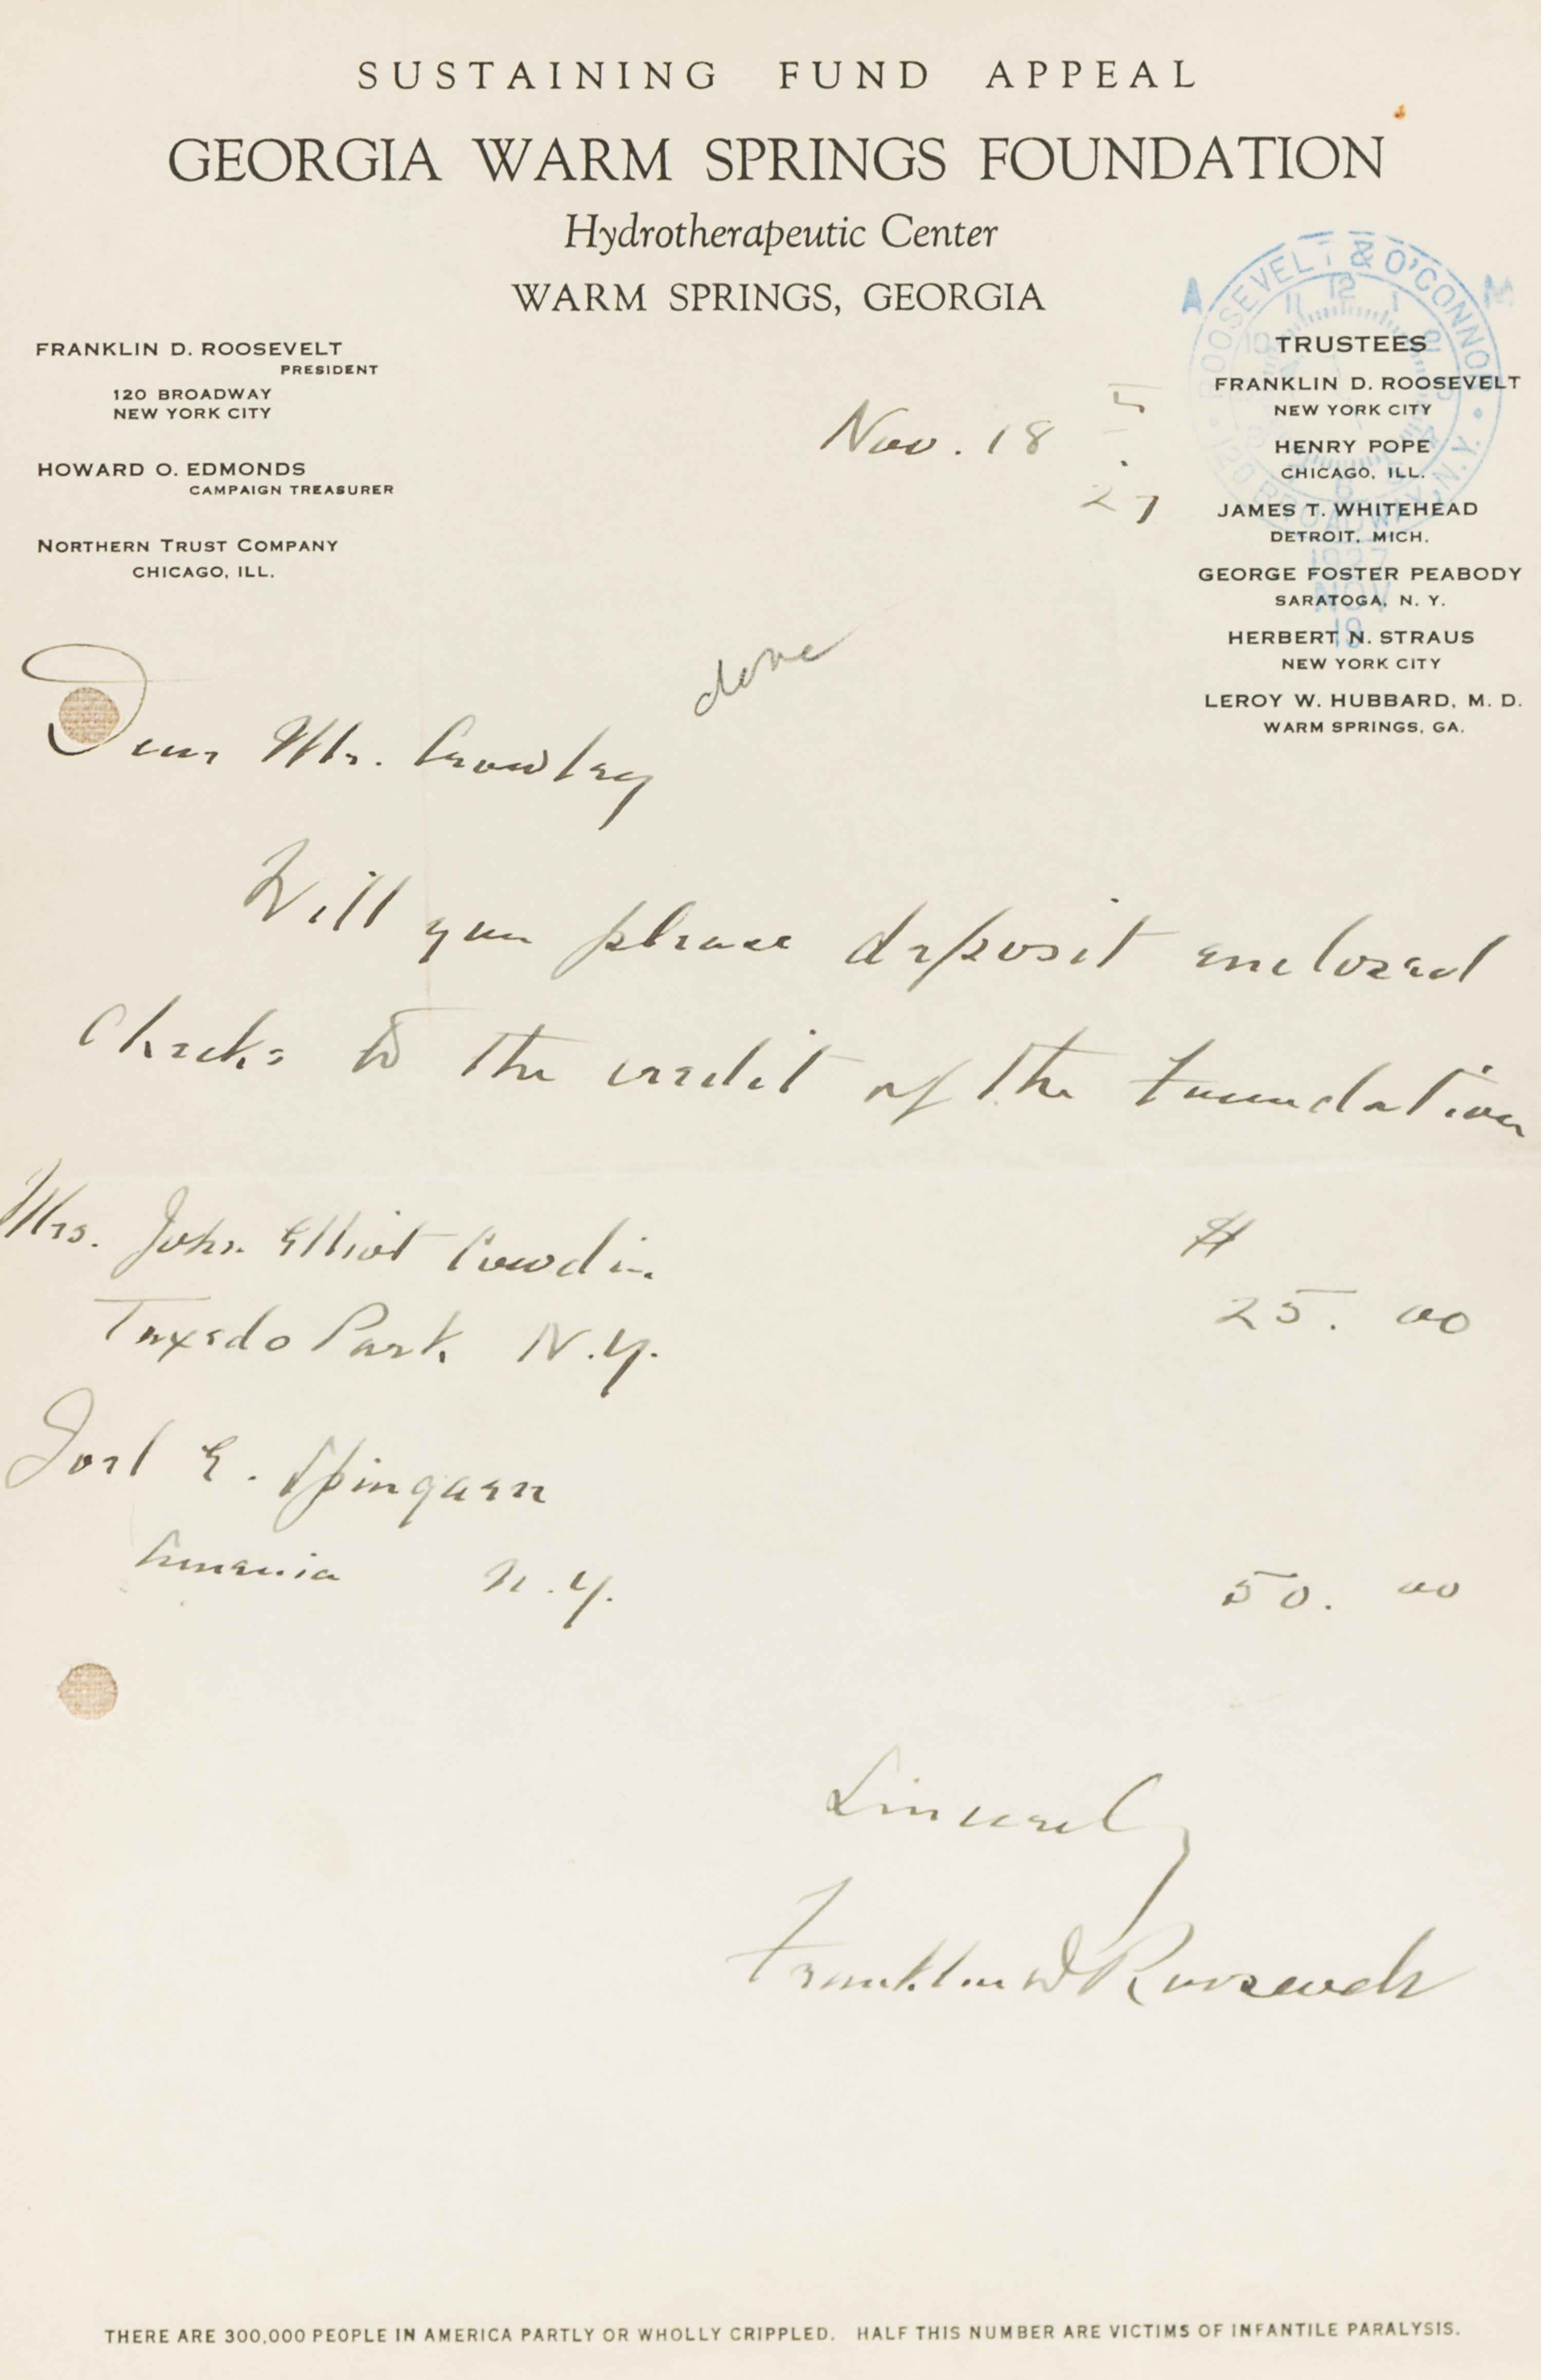 SUSTAINING FUND APPEAL
GEORGIA WARM SPRINGS FOUNDATION
Hydrotherapeutic Center
WARM SPRINGS, GEORGIA
FRANKLIN D. ROOSEVELT
PRESIDENT
120 BROADWAY
NEW YORK CITY
HOWARD O. EDMONDS
CAMPAIGN TREASURER
NORTHERN TRUST COMPANY
CHICAGO, ILL.
A M
ROOSEVELT & O'CONNOR
120 BROADWAY, N.Y.
1927
NOV
TRUSTEES
FRANKLIN D. ROOSEVELT
NEW YORK CITY
HENRY POPE
CHICAGO, ILL.
JAMES T. WHITEHEAD
DETROIT, MICH.
GEORGE FOSTER PEABODY
SARATOGA, N. Y.
HERBERT N. STRAUS
NEW YORK CITY
LEROY W. HUBBARD, M. D.
WARM SPRINGS, GA.
Nov. 18
27
done
Dear Mr. Crowley
Will you please deposit enclosed
checks to the credit of the Foundation
Mrs. John Elliot Cowdin $
Tuxedo Park N.Y. 25.00
Joel E. Spingarn
Amenia N.Y. 50.00
Sincerely
Franklin D Roosevelt
THERE ARE 300,000 PEOPLE IN AMERICA PARTLY OR WHOLLY CRIPPLED. HALF THIS NUMBER ARE VICTIMS OF INFANTILE PARALYSIS.